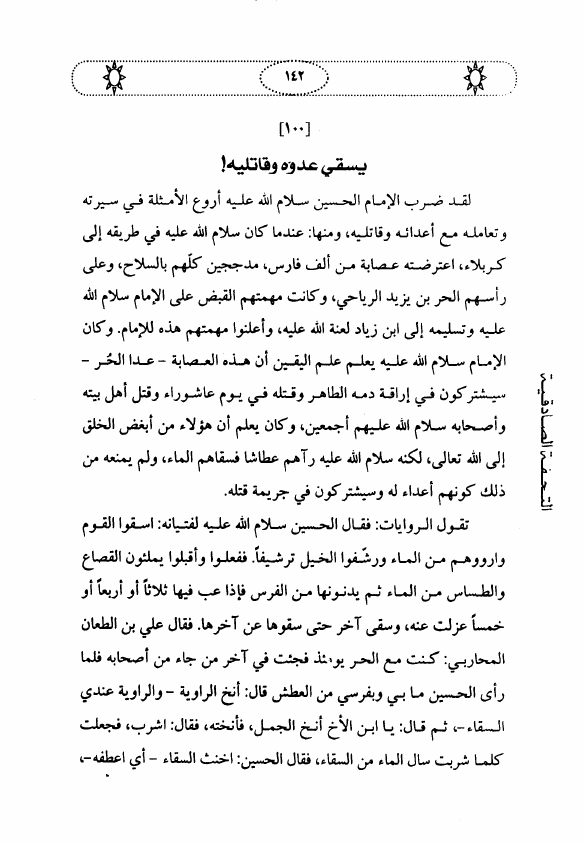 ١٤٢
[١٠٠]
يسقي عدوه وقاتليه!
لقد ضرب الإمام الحسين سلام الله عليه أروع الأمثلة في سيرته
وتعامله مع أعدائه وقاتليه، ومنها: عندما كان سلام الله عليه في طريقه إلى
كربلاء، اعترضته عصابة من ألف فارس، مدججين كلّهم بالسلاح، وعلى
رأسهم الحر بن يزيد الرياحي، وكانت مهمتهم القبض على الإمام سلام الله
عليه وتسليمه إلى ابن زياد لعنة الله عليه، وأعلنوا مهمتهم هذه للإمام. وكان
الإمام سلام الله عليه يعلم علم اليقين أن هذه العصابة – عدا الحُر –
سيشتركون في إراقة دمه الطاهر وقتله في يوم عاشوراء وقتل أهل بيته
وأصحابه سلام الله عليهم أجمعين، وكان يعلم أن هؤلاء من أبغض الخلق
إلى الله تعالى، لكنه سلام الله عليه رآهم عطاشا فسقاهم الماء، ولم يمنعه من
ذلك كونهم أعداء له وسيشتركون في جريمة قتله.
تقول الروايات: فقال الحسين سلام الله عليه لفتيانه: اسقوا القوم
وارووهم من الماء ورشّفوا الخيل ترشيفاً. ففعلوا وأقبلوا يملئون القصاع
والطساس من الماء ثم يدنونها من الفرس فإذا عب فيها ثلاثاً أو أربعاً أو
خمساً عزلت عنه، وسقى آخر حتى سقوها عن آخرها. فقال علي بن الطعان
المحاربي: كنت مع الحر يومئذ فجئت في آخر من جاء من أصحابه فلما
رأى الحسين ما بي وبفرسي من العطش قال: أنخ الراوية – والراوية عندي
السقاء –، ثم قال: يا ابن الأخ أنخ الجمل، فأنخته، فقال: اشرب، فجعلت
كلما شربت سال الماء من السقاء، فقال الحسين: اخنث السقاء – أي اعطفه –،
التحفة الصادقية